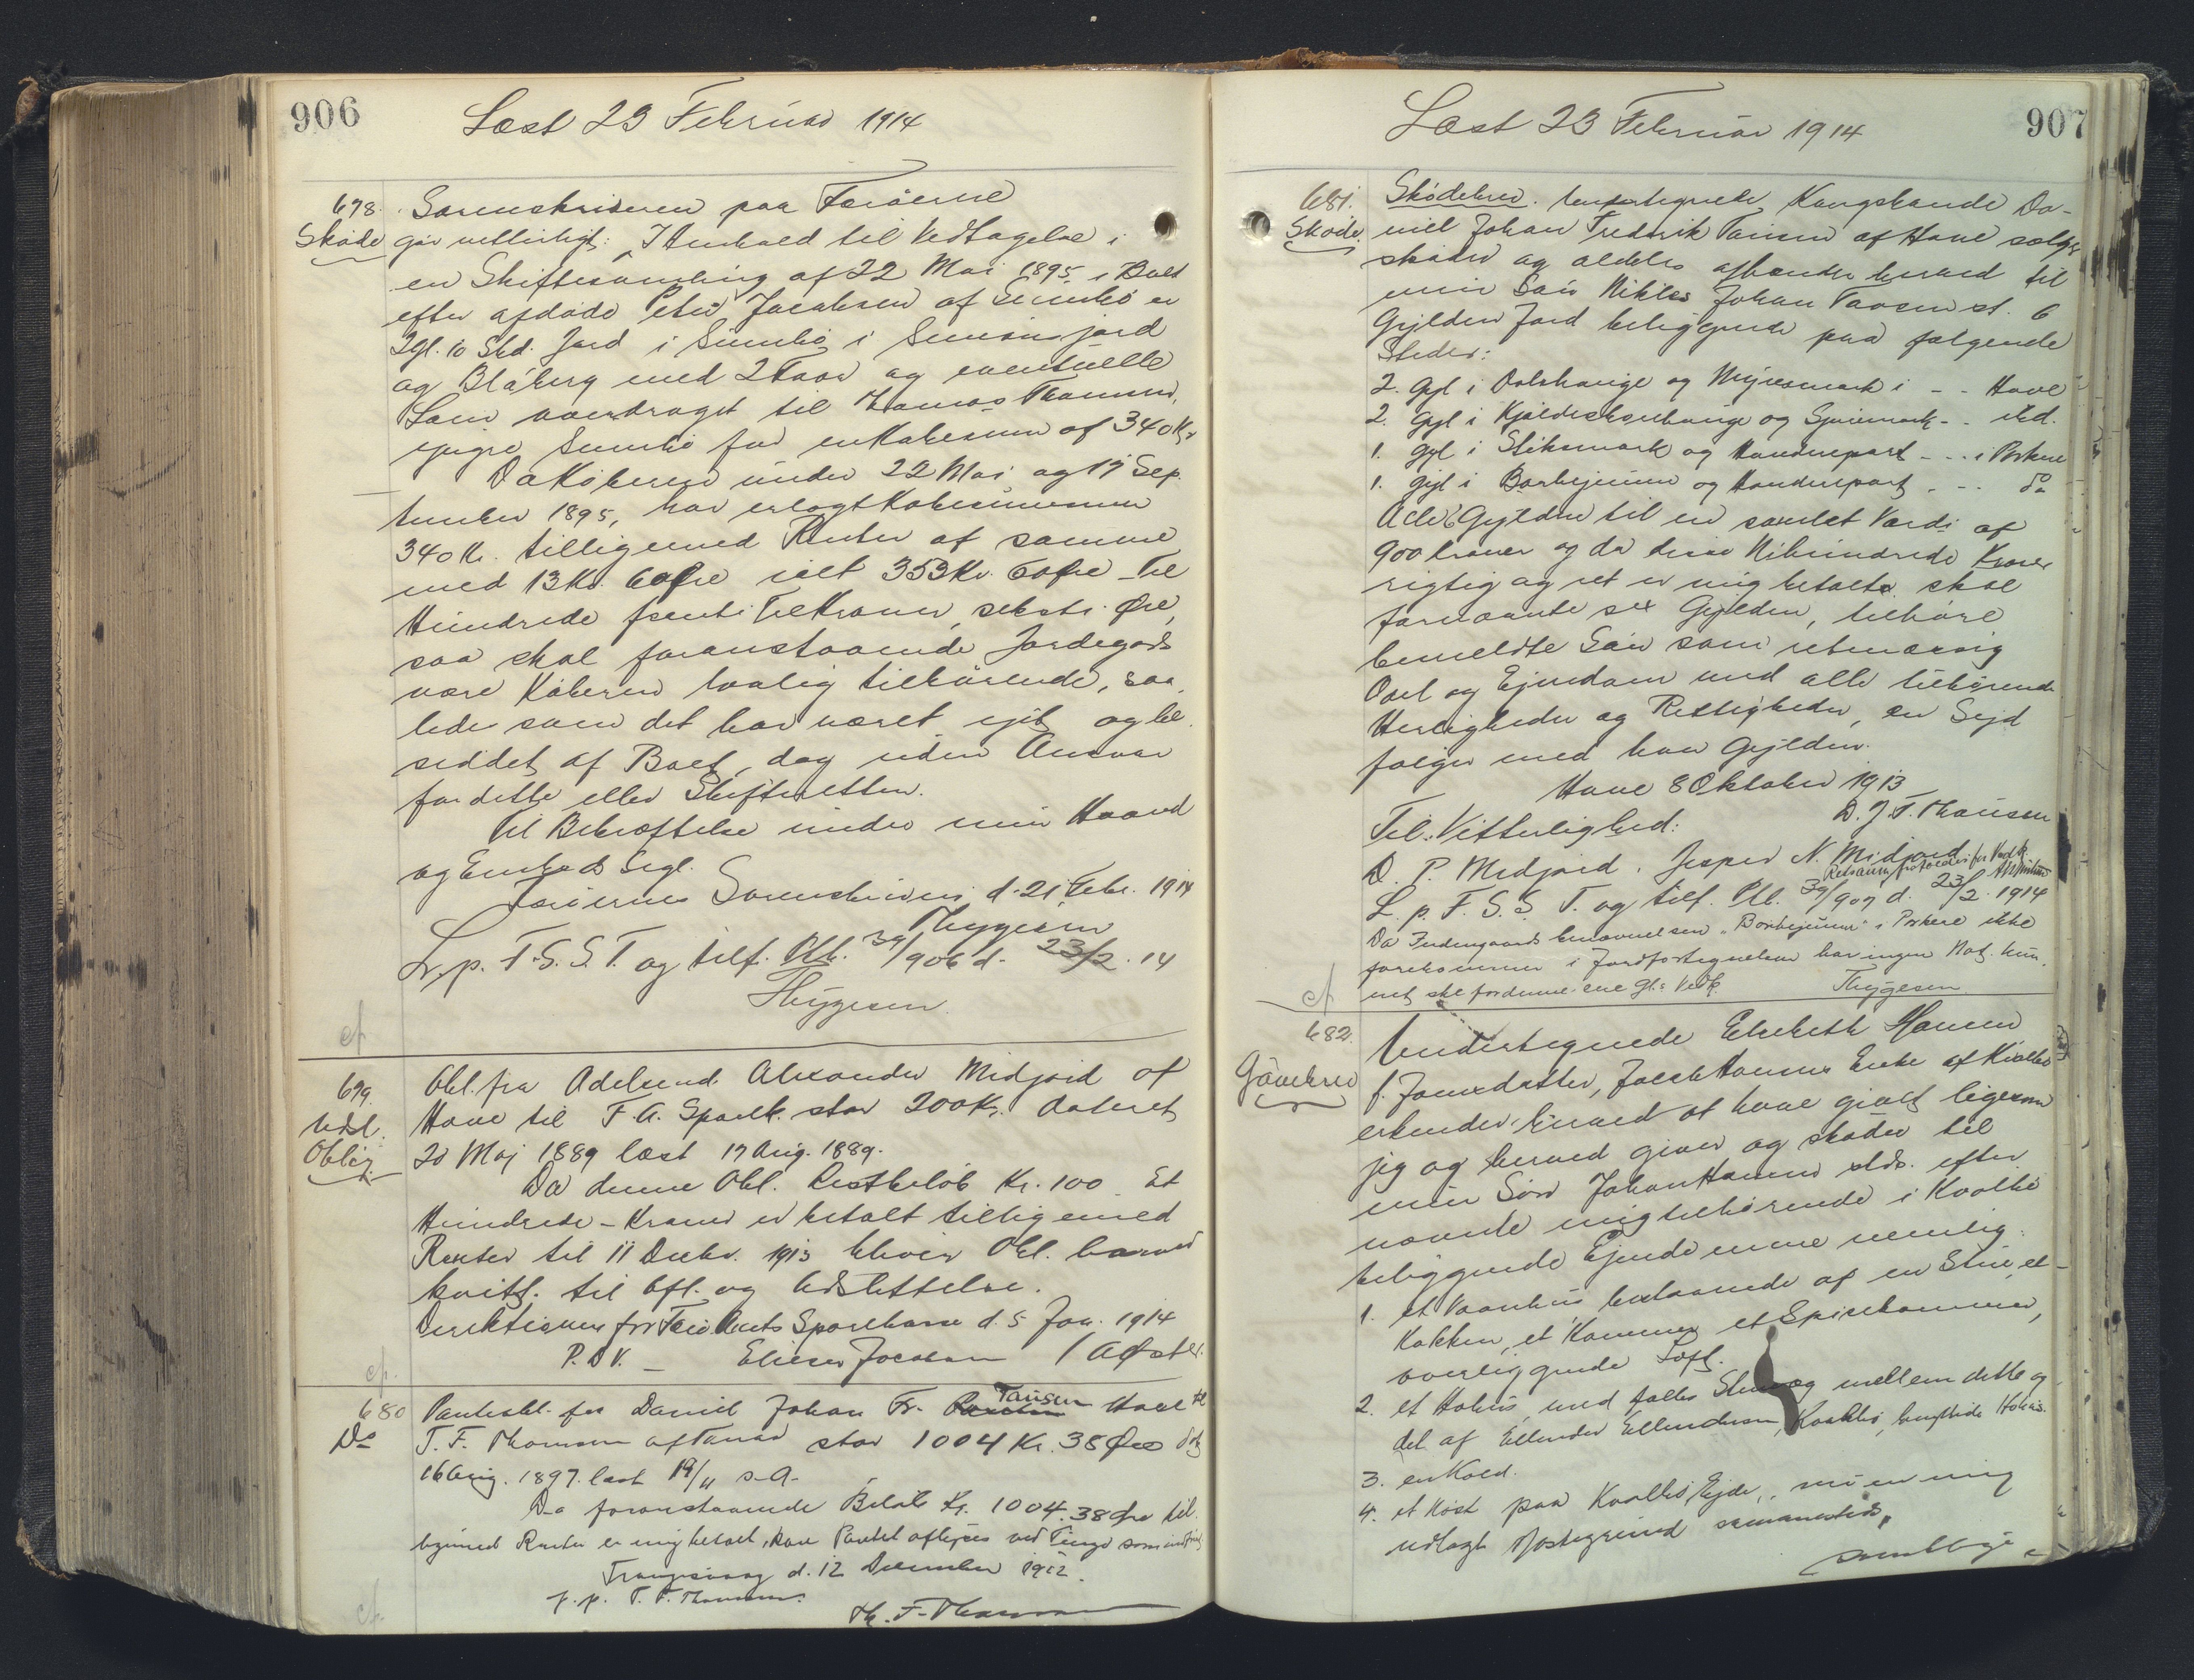 906
Læst 23 Februar 1914
678.
Skøde
Sorenskriveren paa Færøerne
gør vitterligt: I Henhold til Vedtagelse i
en Skiftesamling af 22 Mai 1895 i Boet
efter afdøde Peter Jacobsen af Sumbø er
2 Gl. 10 Skd. Jord i Sumbø i
og Bláberg med 2 Faar og eventuelle
Lam overdraget til Thomas Thomsen,
Sumbø for en Købesum af 340 Kr
Da Køberen under 22 Mai og 17 Sep
tember 1895, har erlagt Købesummen
340 Kr. tilligemed Renter af samme
med 13 Kr. 60 Øre ialt 353 Kr. 60 Øre Tre
Hundrede femti Tre Kroner, seksti Øre,
saa skal foranstaaende Jordegods
være Køberen lovlig tilhørende, saa
lede som det har været ejet og be
siddet af Boet, dog uden Ansvar
for dette eller Skifteretten.
Til Bekræftelse under min Haand
og Embeds Segl.
Færøernes Sorenskriveri, d. 21 Febr. 1914
Thygesen
L. p. F. S. S. T. og tilf. Pb. 39/906 d. 23/2. 14
Thygesen.
cf
679.
Udsl.
Oblig.
Obl. fra Adelsend. Alexander Midjord af
Hove til F. A. Spark. stor 200 Kr. dateret
20 Maj 1889 læst 17 Aug. 1889.
Da denne Obl. Restbeløb Kr. 100 Et
Hundrede - Kroner er betalt tilligemed
Renter til 11 Decbr. 1913 bliver Obl. herved
kvitt. til Afl. og Udslettelse.
Direktionen for Færø Amts Sparekasse d. 5 Jan. 1914
P. D V. - Elieser Jacobsen /
cf.
680
Do
Panteobl. fra Daniel Johan Fr. Tausen Hove til
T. F. Thomsen af stor 1004 Kr. 38 Øre
16 Aug. 1897. læst 19/11 s. A.
Da foranstaaende Beløb Kr. 1004. 38 Øre til
ligemed Renter er mig betalt, kan Pantet aflyses ved Tinge som
Trangisvaag d. 12 December 1912.
p. p. T. F. Thomsen.
Th. F. Thomsen
cf.
907
Læst 23 Februar 1914
681.
Skøde.
Skødebrev. Undertegnede Kongsbonde Da-
niel Johan Fredrik Tausen af Hove sælger
skøder og aldeles afhænder herved til
min Søn Niklas Johan Tausen st. 6
Gylden Jord beliggende paa følgende
Steder:
2. Gyl i og Mýresmark i - - Hove
2. Gyl i og - - ibd.
1. gyl i Sliksmark og Handerepart - - - i Porkere
1. gyl i Borhejunum og Handerepart - - - do
Alle 6 Gylden til en samlet Værdi af
900 kroner og da disse Nihundrede Kroner
rigtig og ret er mig betalte skal
fornævnte sex Gylden, tilhøre
bemeldte Søn som retmæssig
Odel og Ejendom med alle tilhørende
Herligheder og Rettigheder, en Sejd
følger med hver Gylden.
Hove 8 Oktober 1913
D. J. F. Thausen
Til Vitterlighed:
D. P. Midjord. Jesper N. Midjord
L. p. F. S. S. T. og tilf. Pb. 39/907 d. 23/2 1914
Da Indengaards benævnelsen "Borhejunum" i Porkere ikke
forekommer i Jordfortegnelsen har ingen Not. kun
net ske for denne ene Gl.s Vedk.
Thygesen
cf
682.
Gavebrev
Undertegnede Elsebeth Hansen
f. Joensdatter, Jacob Hansens Enke af Kvalbø
erkender herved at have givet ligesom
jeg og herved giver og skøder til
min Søn Johan Hansen stds. efter
nævnte mig tilhørende i Kvalbø
beliggende Ejendomme nemlig:
1. et Vaanhus bestaaende af en Stue, et
Køkken, et Kammer et Spisekammer,
overliggende Loft.
2. et Hohus, med fælles mellem dette og
det af Ellendur Ellendersen, Kvalbø, benyttede Hohus.
3. en Kold.
4. et Nøst paa Kvalbø Ejde, mig
udlagt Nøstegrund sammesteds,